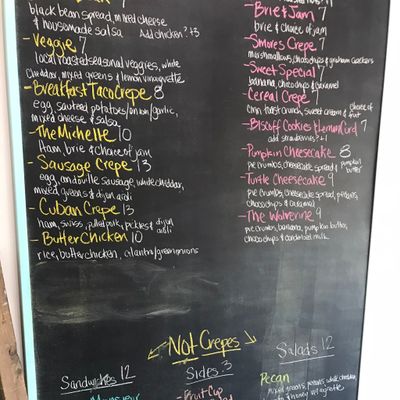 black bean spread, mixed cheese
& housemade salsa Add chicken? +3
- Veggie 7
local roasted seasonal veggies, white
cheddar, mixed greens & lemon vinaigrette
- Breakfast Taco Crepe 8
egg, sauteed potatoes/onion/garlic,
mixed cheese & salsa
- The Michelle 10
Ham, brie & choice of jam
- Sausage Crepe 13
egg, andouille sausage, white cheddar,
mixed greens & dijon aioli
- Cuban Crepe 13
ham, swiss, pulled pork, pickles & dijon
aioli
- Butter Chicken 10
rice, butter chicken, cilantro/green onions
- Brie & Jam 7
brie & choice of jam
- S'mores Crepe 7
marshmallows, choco chips & graham crackers
- Sweet Special 7
banana, choco chips & caramel
- Cereal Crepe 7
cinn. toast crunch, sweet cream & choice of
fruit
- Biscoff Cookies & Lemon Curd 7
add strawberries? +1
- Pumpkin Cheesecake 8
pie crumbs, cheesecake spread & pumpkin
butter
- Turtle Cheesecake 9
pie crumbs, cheesecake spread, pecans,
choco chips & caramel
- The Wolverine 9
pie crumbs, banana, pumpkin butter,
choco chips & condensed milk
Not Crepes
Sandwiches 12
Sides 3
- Fruit Cup
Salads 12
Pecan
mixed greens, pecans, white cheddar,
& honey vinaigrette